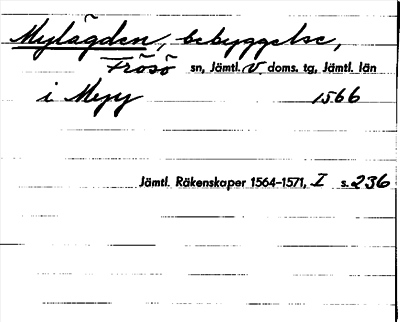 Mylägden, bebyggelse,
Frösö sn, Jämtl. V. doms. tg, Jämtl. län
i Myy 1566
Jämtl. Räkenskaper 1564–1571, I s. 236